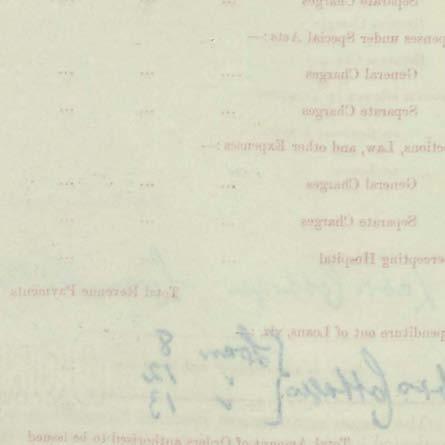 Separate Charges ... ...
penses under Special Acts:—
General Charges .... ... ...
Separate Charges ... ... ...
ctions, Law, and other Expenses:—
General Charges ... ... ...
Separate Charges ... ... ...
ercepting Hospital ... ... ...
Total Revenue Payments
penditure out of Loans, viz.:—
Loan 8
" 12
" 13
Total Amount of Orders authorised to be issued